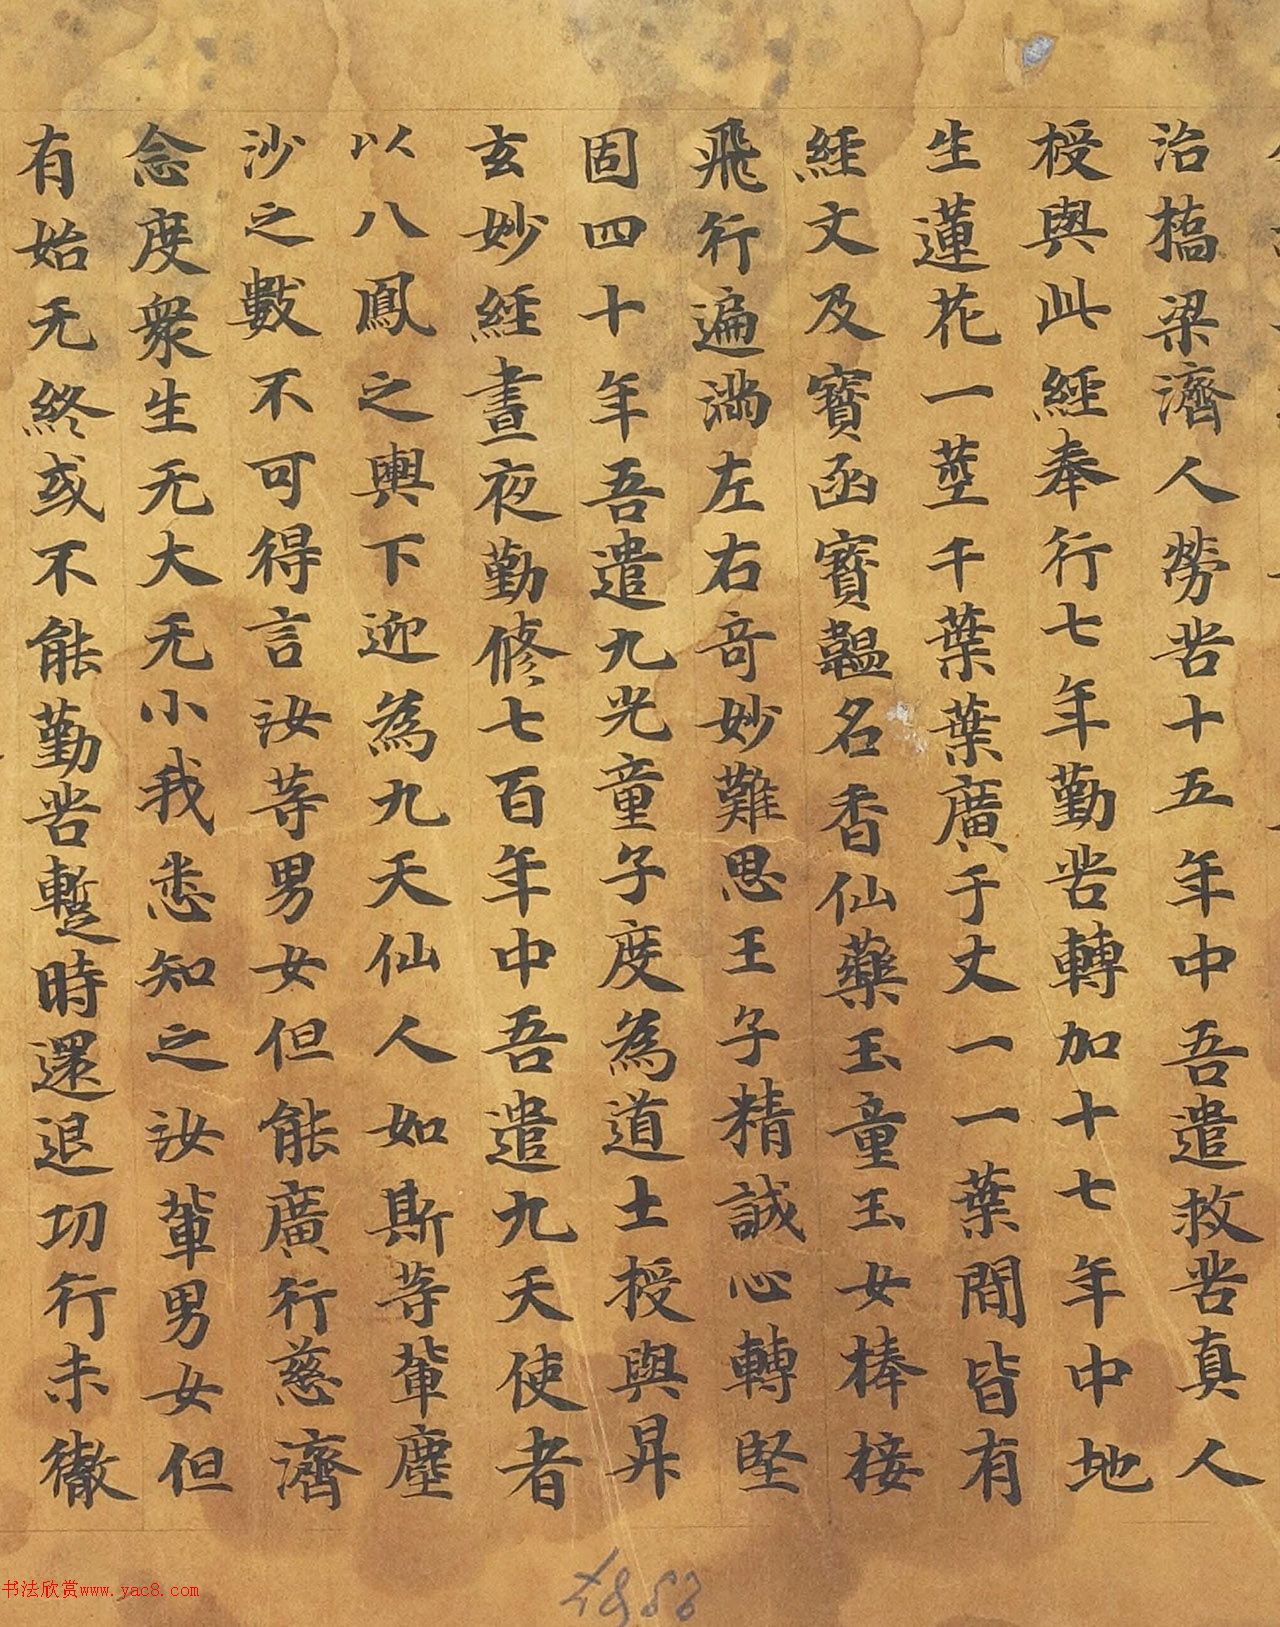 治橋梁濟人勞苦十五年中吾遣救苦真人
授與此經奉行七年勤苦轉加十七年中地
生蓮花一莖千葉葉廣千丈一一葉間皆有
經文及寶函寶韞名香仙藥玉童玉女棒接
飛行遍滿左右奇妙難思王子精誠心轉堅
固四十年吾遣九光童子度為道士授與昇
玄妙經晝夜勤修七百年中吾遣九天使者
以八鳳之輿下迎為九天仙人如斯等輩塵
沙之數不可得言汝等男女但能廣行慈濟
念度衆生无大无小我悉知之汝輩男女但
有始无終或不能勤苦暫時還退功行未徹
书法欣赏www.yac8.com